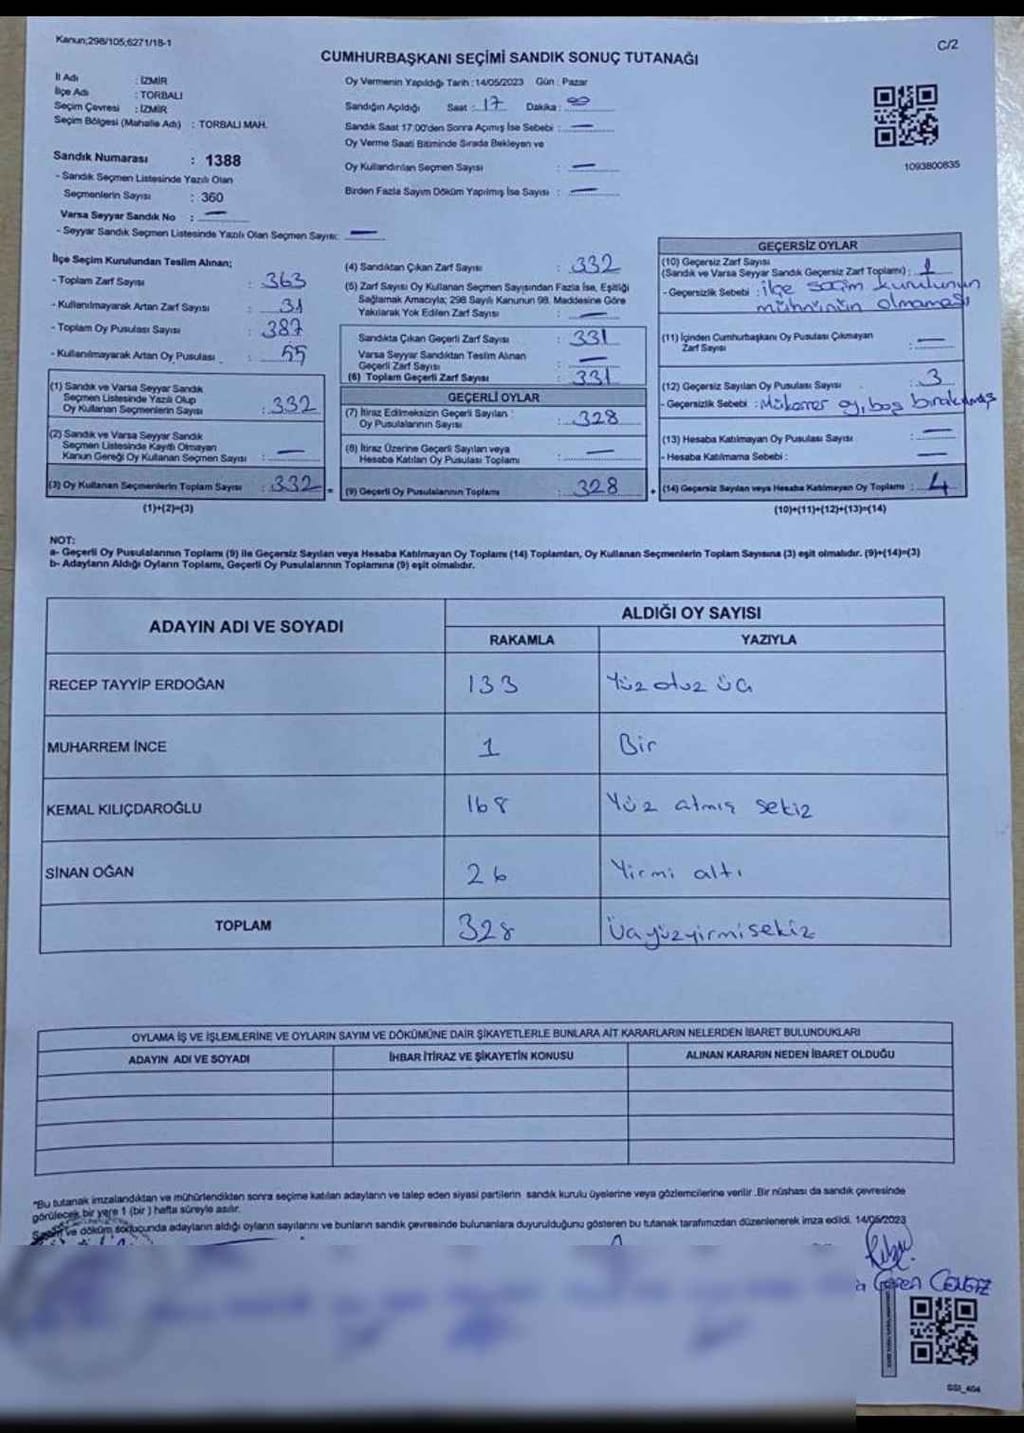 Kanun;298/105;6271/18-1
C/2
CUMHURBAŞKANI SEÇİMİ SANDIK SONUÇ TUTANAĞI
İl Adı : İZMİR
İlçe Adı : TORBALI
Seçim Çevresi : İZMİR
Seçim Bölgesi (Mahalle Adı) : TORBALI MAH.
Oy Vermenin Yapıldığı Tarih : 14/05/2023 Gün : Pazar
Sandığın Açıldığı Saat : 17 Dakika : 00
Sandık Saat 17:00'den Sonra Açımış İse Sebebi : —
Oy Verme Saati Bitiminde Sırada Bekleyen ve
Oy Kullandırılan Seçmen Sayısı : —
Birden Fazla Sayım Döküm Yapılmış İse Sayısı : —
1093800835
Sandık Numarası : 1388
- Sandık Seçmen Listesinde Yazılı Olan
Seçmenlerin Sayısı : 360
Varsa Seyyar Sandık No : —
- Seyyar Sandık Seçmen Listesinde Yazılı Olan Seçmen Sayısı: —
İlçe Seçim Kurulundan Teslim Alınan;
- Toplam Zarf Sayısı : 363
- Kullanılmayarak Artan Zarf Sayısı : 31
- Toplam Oy Pusulası Sayısı : 387
- Kullanılmayarak Artan Oy Pusulası : 55
(1) Sandık ve Varsa Seyyar Sandık
Seçmen Listesinde Yazılı Olup
Oy Kullanan Seçmenlerin Sayısı : 332
(2) Sandık ve Varsa Seyyar Sandık
Seçmen Listesinde Kayıtlı Olmayan
Kanun Gereği Oy Kullanan Seçmen Sayısı : —
(3) Oy Kullanan Seçmenlerin Toplam Sayısı : 332 =
(1)+(2)=(3)
(4) Sandıktan Çıkan Zarf Sayısı : 332
(5) Zarf Sayısı Oy Kullanan Seçmen Sayısından Fazla İse, Eşitliği
Sağlamak Amacıyla; 298 Sayılı Kanunun 98. Maddesine Göre
Yakılarak Yok Edilen Zarf Sayısı : —
Sandıkta Çıkan Geçerli Zarf Sayısı : 331
Varsa Seyyar Sandıktan Teslim Alınan
Geçerli Zarf Sayısı : —
(6) Toplam Geçerli Zarf Sayısı : 331
GEÇERLİ OYLAR
(7) İtiraz Edilmeksizin Geçerli Sayılan
Oy Pusulalarının Sayısı : 328
(8) İtiraz Üzerine Geçerli Sayılan veya
Hesaba Katılan Oy Pusulası Toplamı : —
(9) Geçerli Oy Pusulalarının Toplamı : 328 +
GEÇERSİZ OYLAR
(10) Geçersiz Zarf Sayısı
(Sandık ve Varsa Seyyar Sandık Geçersiz Zarf Toplamı) : 1
- Geçersizlik Sebebi : ilçe seçim kurulunun
mühürünün olmaması
(11) İçinden Cumhurbaşkanı Oy Pusulası Çıkmayan
Zarf Sayısı : —
(12) Geçersiz Sayılan Oy Pusulası Sayısı : 3
- Geçersizlik Sebebi : Mükerrer oy, boş bırakılmış
(13) Hesaba Katılmayan Oy Pusulası Sayısı : —
- Hesaba Katılmama Sebebi : —
(14) Geçersiz Sayılan veya Hesaba Katılmayan Oy Toplamı : 4
(10)+(11)+(12)+(13)=(14)
NOT:
a- Geçerli Oy Pusulalarının Toplamı (9) ile Geçersiz Sayılan veya Hesaba Katılmayan Oy Toplamı (14) Toplamları, Oy Kullanan Seçmenlerin Toplam Sayısına (3) eşit olmalıdır. (9)+(14)=(3)
b- Adayların Aldığı Oyların Toplamı, Geçerli Oy Pusulalarının Toplamına (9) eşit olmalıdır.
ADAYIN ADI VE SOYADI ALDIĞI OY SAYISI
RAKAMLA YAZIYLA
RECEP TAYYİP ERDOĞAN 133 Yüz otuz üç
MUHARREM İNCE 1 Bir
KEMAL KILIÇDAROĞLU 168 Yüz atmış sekiz
SİNAN OĞAN 26 Yirmi altı
TOPLAM 328 Üçyüzyirmisekiz
OYLAMA İŞ VE İŞLEMLERİNE VE OYLARIN SAYIM VE DÖKÜMÜNE DAİR ŞİKAYETLERLE BUNLARA AİT KARARLARIN NELERDEN İBARET BULUNDUKLARI
ADAYIN ADI VE SOYADI İHBAR İTİRAZ VE ŞİKAYETİN KONUSU ALINAN KARARIN NEDEN İBARET OLDUĞU
*Bu tutanak imzalandıktan ve mühürlendikten sonra seçime katılan adayların ve talep eden siyasi partilerin sandık kurulu üyelerine veya gözlemcilerine verilir. Bir nüshası da sandık çevresinde
görülecek bir yere 1 (bir) hafta süreyle asılır.
Sayım ve döküm sonucunda adayların aldığı oyların sayılarını ve bunların sandık çevresinde bulunanlara duyurulduğunu gösteren bu tutanak tarafımızdan düzenlenerek imza edildi. 14/05/2023
SSI_404